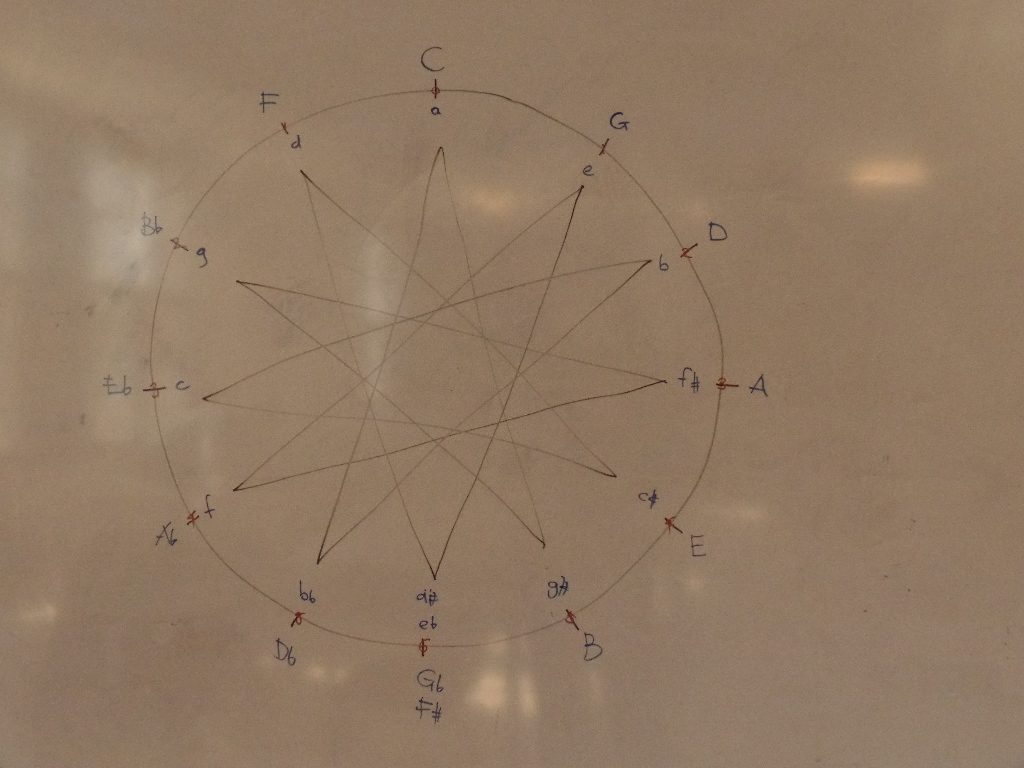 C
a
F
d
G
e
D
b
Bb
g
Eb
c
f#
A
Ab
f
c#
E
bb
Db
d#
eb
Gb
F#
g#
B